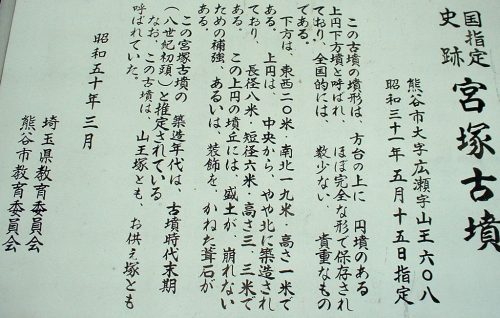 国指定
史跡
宮塚古墳
熊谷市大字広瀬字山王六〇八
昭和三十一年五月十五日指定
この古墳の墳形は、方台の上に円墳のある
上円下方墳と呼ばれ、ほぼ完全な形で保存され
ており、全国的には数少ない貴重なもの
である。
下方は、東西二〇米・南北一九米・高さ一米で
ある。上円は、中央から、やや北に築造され
ており、長径八米、短径六米、高さ三、三米で
ある。この上円の墳丘には、盛土が崩れない
ための補強、あるいは、装飾を、かねた葺石が
ある。
この宮塚古墳の築造年代は、古墳時代末期
(八世紀初頭)と推定されている。
なお、この古墳は、山王塚とも、お供え塚とも
呼ばれていた。
昭和五十年三月
埼玉県教育委員会
熊谷市教育委員会